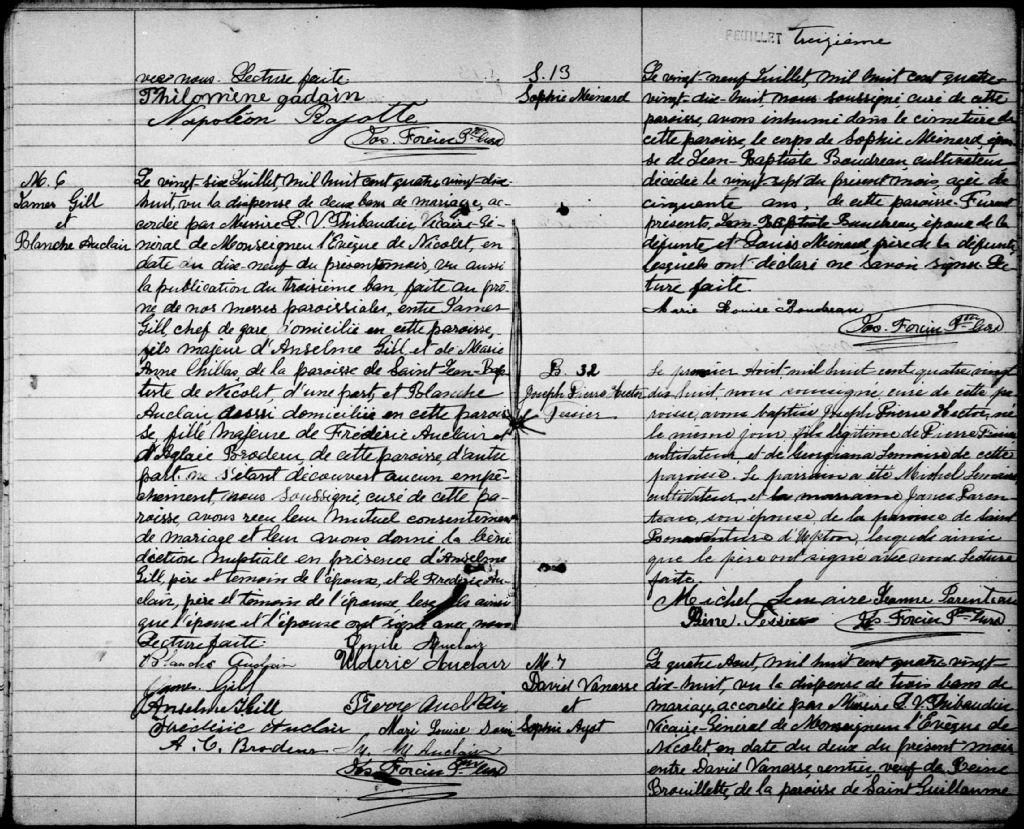 vec nous. Lecture faite.
Philomène gadain
Napoléon Rajotte
Jos. Forcier Ptre Curé
M. 6
James Gill
et
Blanche Auclair
Le vingt-six Juillet, mil huit cent quatre-vingt-dix-
huit, vu la dispense de deux bans de mariage, ac-
cordée par Messire L. V. Thibaudier, Vicaire Gé-
néral de Monseigneur l'Evêque de Nicolet, en
date du dix-neuf du présent mois, vu aussi
la publication du troisième ban, faite au prô-
ne de nos messes paroissiales, entre James
Gill, chef de gare domicilié en cette paroisse,
fils majeur d'Anselme Gill et de Marie
Anne Chillas de la paroisse de Saint Jean-Bap-
tiste de Nicolet, d'une part, et Blanche
Auclair, aussi domiciliée en cette parois-
se, fille majeure de Frédéric Auclair et
d'Aglaé Brodeur, de cette paroisse, d'autre
part, ne s'étant découvert aucun empê-
chement, nous soussigné, curé de cette pa-
roisse, avons reçu leur mutuel consentement
de mariage et leur avons donné la béné-
diction nuptiale en présence d'Anselme
Gill, père et témoin de l'époux, et de Frédéric Au-
clair, père et témoin de l'épouse, lesquels ainsi
que l'époux et l'épouse ont signé avec nous
Lecture faite.
Emile Auclair
Blanche Auclair
Ulderic Auclair
James Gill
Anselme Gill
Pierre
Frédéric Auclair
Marie Louise
A. C. Brodeur
Auclair
Jos. Forcier Ptre Curé
S. 13
Sophie Meinard
B. 32
Joseph Pierre Hector
Tessier
M. 7
David Vanasse
et
Sophie
FEUILLET treizième
Le vingt-neuf Juillet, mil huit cent quatre-
vingt-dix-huit, nous soussigné curé de cette
paroisse, avons inhumé dans le cimetière de
cette paroisse, le corps de Sophie Meinard, épou-
se de Jean-Baptiste Boudreau cultivateur
décédée le vingt-sept du présent mois, agée de
cinquante ans, de cette paroisse. Furent
présents, Jean Baptiste Boudreau, époux de la
défunte et Louis Meinard, frère de la défunte,
lesquels ont déclaré ne savoir signer. Lec-
ture faite.
Marie Louise Boudreau
Jos. Forcier Ptre Curé
Le premier Aout, mil huit cent quatre vingt
dix huit, nous soussigné, curé de cette pa-
roisse, avons baptisé Joseph Pierre Hector, né
le même jour, fils légitime de Pierre Tessier
cultivateur, et de Georgiana Lemaire de cette
paroisse. Le parrain a été Michel Lemaire
cultivateur, et la marraine Paren-
teau, son épouse, de la paroisse de Saint
Bonaventure d'Upton, lesquels ainsi
que le père ont signé avec nous. Lecture
faite.
Michel Lemaire Jeanne Parenteau
Pierre Tessier Jos. Forcier Ptre Curé
Le quatre Aout, mil huit cent quatre vingt
dix-huit, vu la dispense de trois bans de
mariage, accordée par Messire L. V. Thibaudier
Vicaire-Général de Monseigneur l'Evêque de
Nicolet, en date du deux du présent mois
entre David Vanasse, rentier, veuf de Reine
Brouillette, de la paroisse de Saint Guillaume